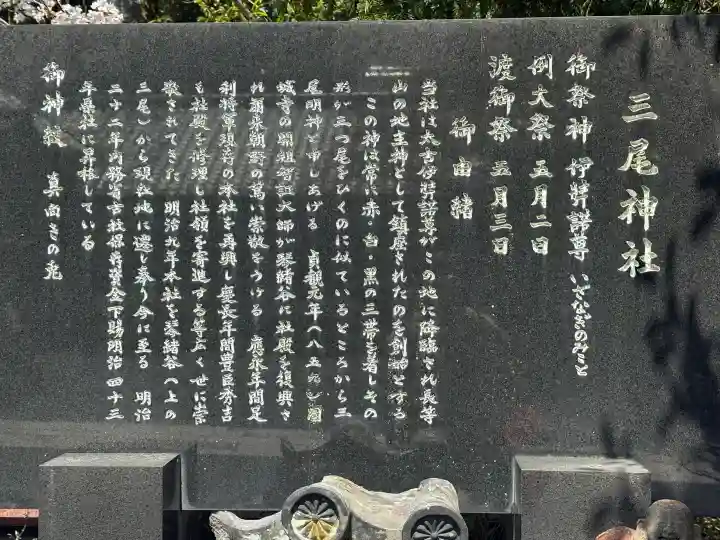 三尾神社
御祭神 伊弉諾尊 いざなぎのみこと
例大祭 五月二日
渡御祭 五月三日
御由緒
当社は太古伊弉諾尊がこの地に降臨され長等
山の地主神として鎮座されたのを創始とする
この神は常に赤・白・黒の三帯を着しその
形が三つ尾をひくのに似ているところから三
尾明神と申し上げる 貞観元年(八五九)園
城寺の開祖智証大師が琴緒谷に社殿を復興さ
れ爾来朝野の篤い崇敬をうける 應永年間足
利将軍現存の本社を再興し慶長年間豊臣秀吉
も社殿を修理し社領を寄進する等広く世に崇
敬されてきた 明治九年本社を琴緒谷(上の
三尾)から現社地に遷し奉り今に至る 明治
三十二年内務省古社保存資金下賜明治四十三
年県社に昇格している
御神紋 真向きの兎